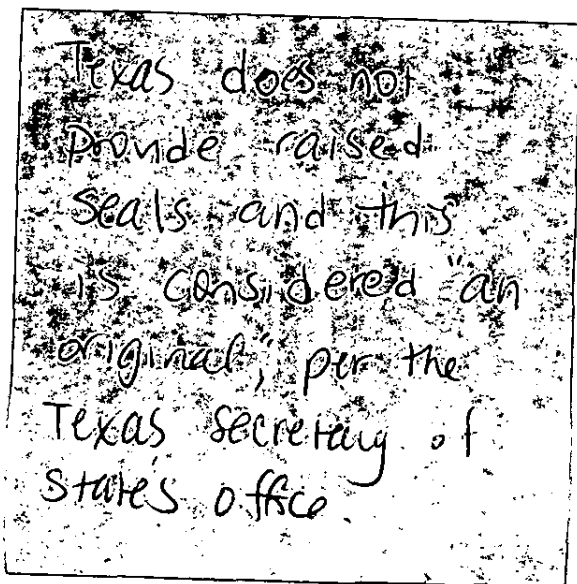 Texas does not
provide raised
seals and this
is considered "an
original", per the
Texas secretary of
state's office